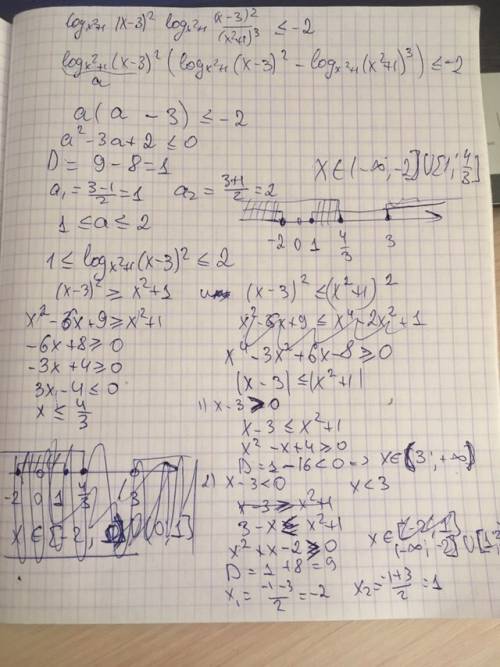 log_{x²+1} (x-3)² log_{x²+1} (x-3)²/(x²+1)³ ≤ -2
log_{x²+1} (x-3)² (log_{x²+1} (x-3)² - log_{x²+1} (x²+1)³) ≤ -2
a
a(a - 3) ≤ -2
a² - 3a + 2 ≤ 0
D = 9 - 8 = 1
a₁ = (3-1)/2 = 1 a₂ = (3+1)/2 = 2
1 ≤ a ≤ 2
X ∈ (-∞; -2] U [1; 4/3]
-2 0 1 4/3 3
1 ≤ log_{x²+1} (x-3)² ≤ 2
(x-3)² ≥ x²+1 и (x-3)² ≤ (x²+1)²
x² - 6x + 9 ≥ x² + 1
-6x + 8 ≥ 0
-3x + 4 ≥ 0
3x - 4 ≤ 0
x ≤ 4/3
x² - 6x + 9 ≤ x⁴ - 2x² + 1
x⁴ - 3x² + 6x - 8 ≥ 0
|x-3| ≤ |x²+1|
1) x-3 ≥ 0
x-3 ≤ x²+1
x² - x + 4 ≥ 0
D = 1 - 16 < 0 => x ∈ (3; +∞)
2) x-3 < 0 x < 3
x-3 ≥ x²+1
3-x ≤ x²+1
x² + x - 2 ≥ 0
D = 1 + 8 = 9
x₁ = (-1-3)/2 = -2 x₂ = (-1+3)/2 = 1
x ∈ [-2; 1]
(-∞; -2] U [1;
-2 0 1 4/3 3
x ∈ [-2,